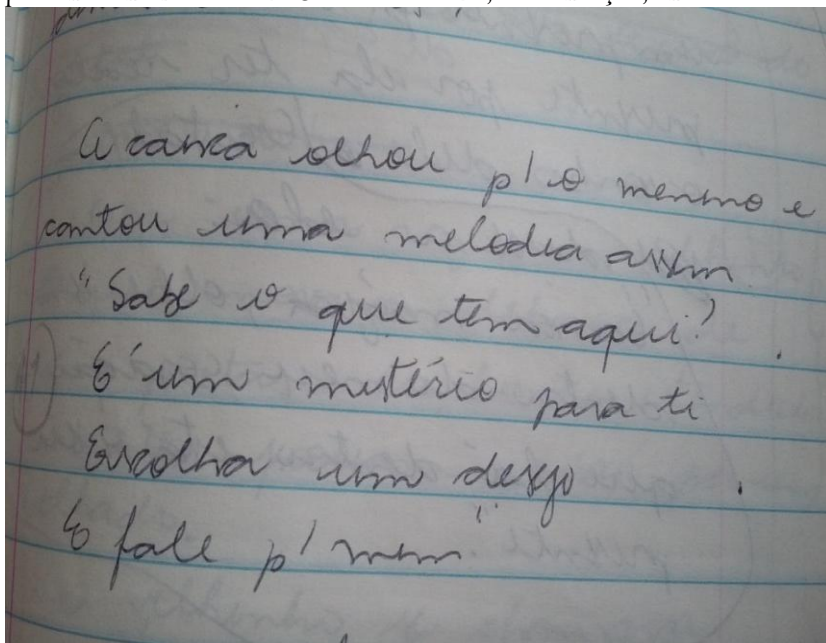 A caixa olhou p/ o menino e
cantou uma melodia assim
"Sabe o que tem aqui?
É um mistério para ti
Escolha um desejo
E fale p/ mim"